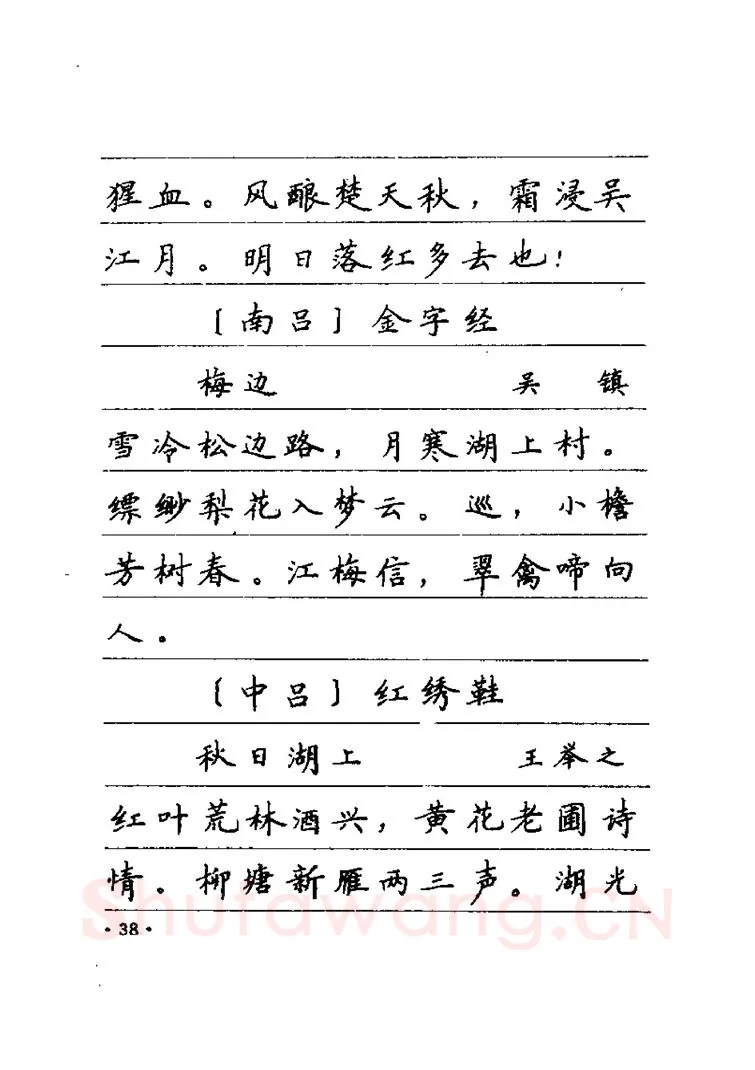 猩血。风酿楚天秋，霜浸吴
江月。明日落红多去也！
〔南吕〕金字经
梅边 吴 镇
雪冷松边路，月寒湖上村。
缥缈梨花入梦云。巡，小檐
芳树春。江梅信，翠禽啼向
人。
〔中吕〕红绣鞋
秋日湖上 王举之
红叶荒林酒兴，黄花老圃诗
情。柳塘新雁两三声。湖光
Shufawang.CN
·38·